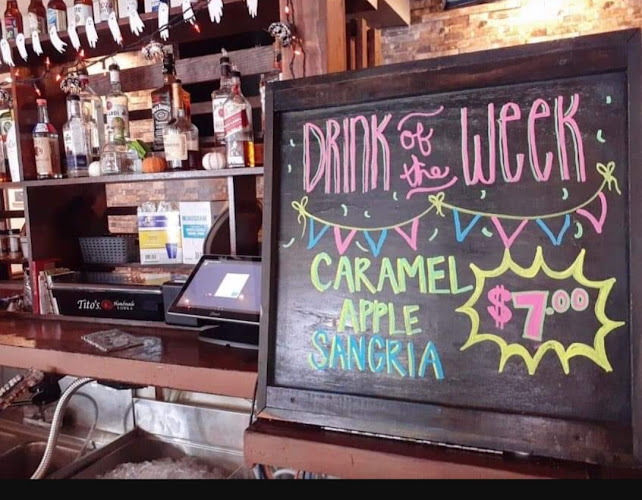 DRINK of the WEEK
CARAMEL
APPLE
SANGRIA
$7.00
Tito's Handmade
VODKA